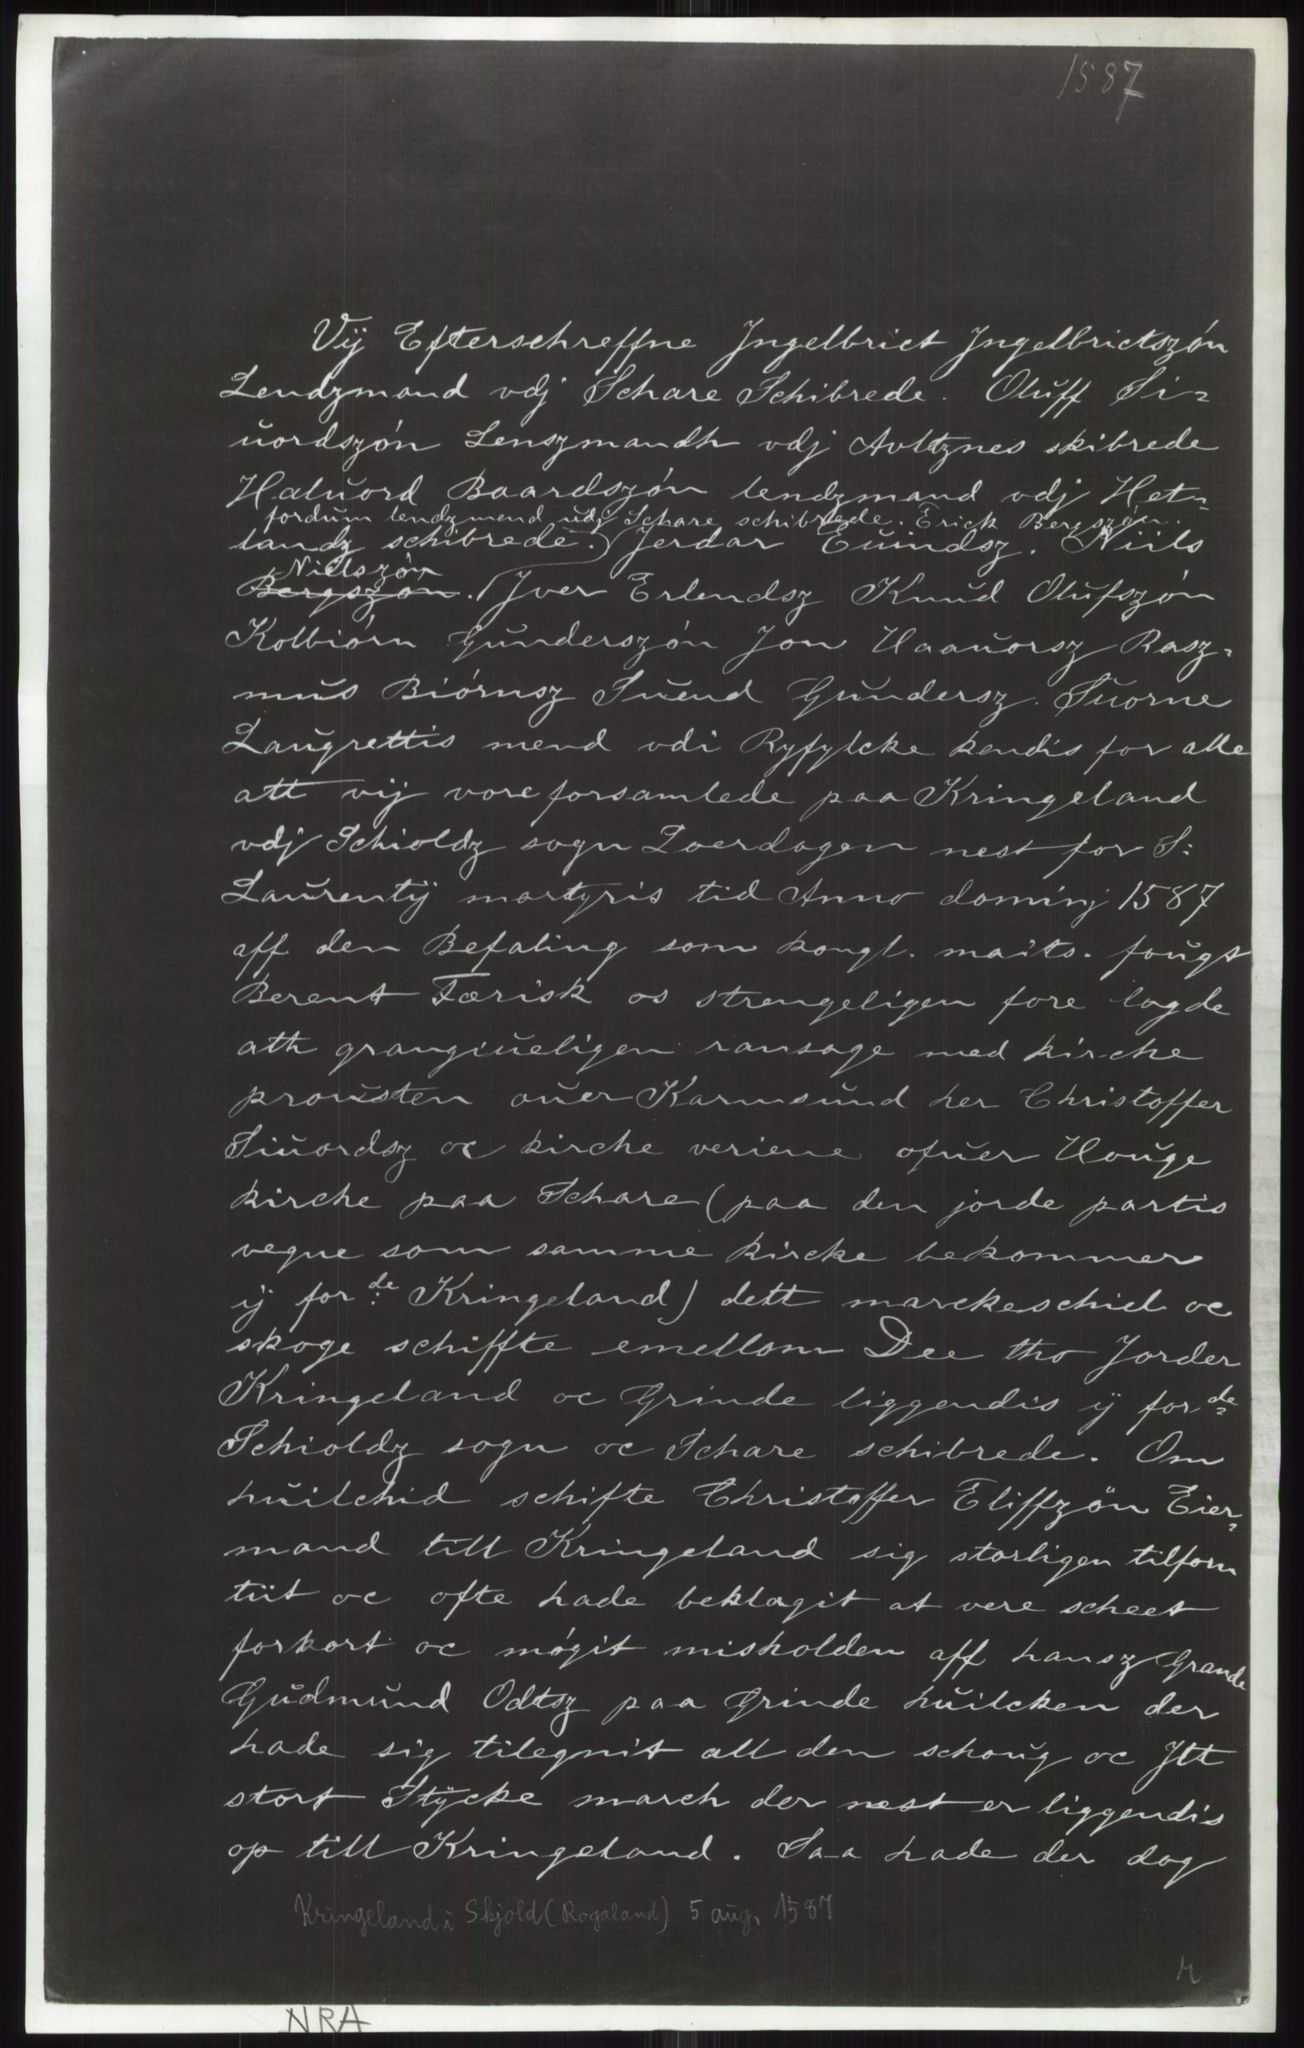 1587
Vÿ Efterschreffne Jngelbrict Jngelbrictszön
Lendzmand vdj Schare Schibrede. Oluff Si-
uordszön Lenszmandh vdj Avltznes skibrede
Haluord Baardszön lendzmand vdj Het-
fordum lendzmend udj Schare schibrede. Erick Bergszøn.
landz schibrede. Jerdar Euindsz. Niils
Nielszön
Bergszøn. Jver Erlendsz Knud Olufszön
Kolbiörn Gunderszön Jon Haauorsz Rasz-
mus Biörnsz Suend Gundersz. Suorne
Laugrettis mend vdi Ryfylcke kendis for alle
att vÿ vore forsamlede paa Kringeland
vdj Schioldz sogn Loerdagen nest for S:
Laurentÿ martyris tid Anno dominj 1587
aff den Befaling som kongl. maits. fougt
Berent Færisk os strengeligen fore lagde
ath grangiueligen ransage med kirche
prousten ouer Karmsund her Christoffer
Siuordsz oc kirche veriene ofuer Houge
kirche paa Schare (paa den jorde partis
vegne som samme kircke bekommer
ÿ for:de Kringeland) dett marckeschiel oc
skoge schiffte emellom Dee tho Jorder
Kringeland oc Grinde liggendis ÿ for:de
Schioldz sogn oc Schare schibrede. Om
huilchid schifte Christoffer Eliffzön Eier-
mand till Kringeland sig storligen tilforn
tiit oc ofte hade beklagit at vere scheet
forkort oc mögit misholden aff hansz Grande
Gudmund Odtsz paa Grinde huilcken der
hade sig tilegnit all den schoug oc Jtt
stort Stÿcke march der nest er liggendis
op till Kringeland. Saa hade der dog
Kringeland i Skjold (Rogaland) 5 aug. 1587
NRA